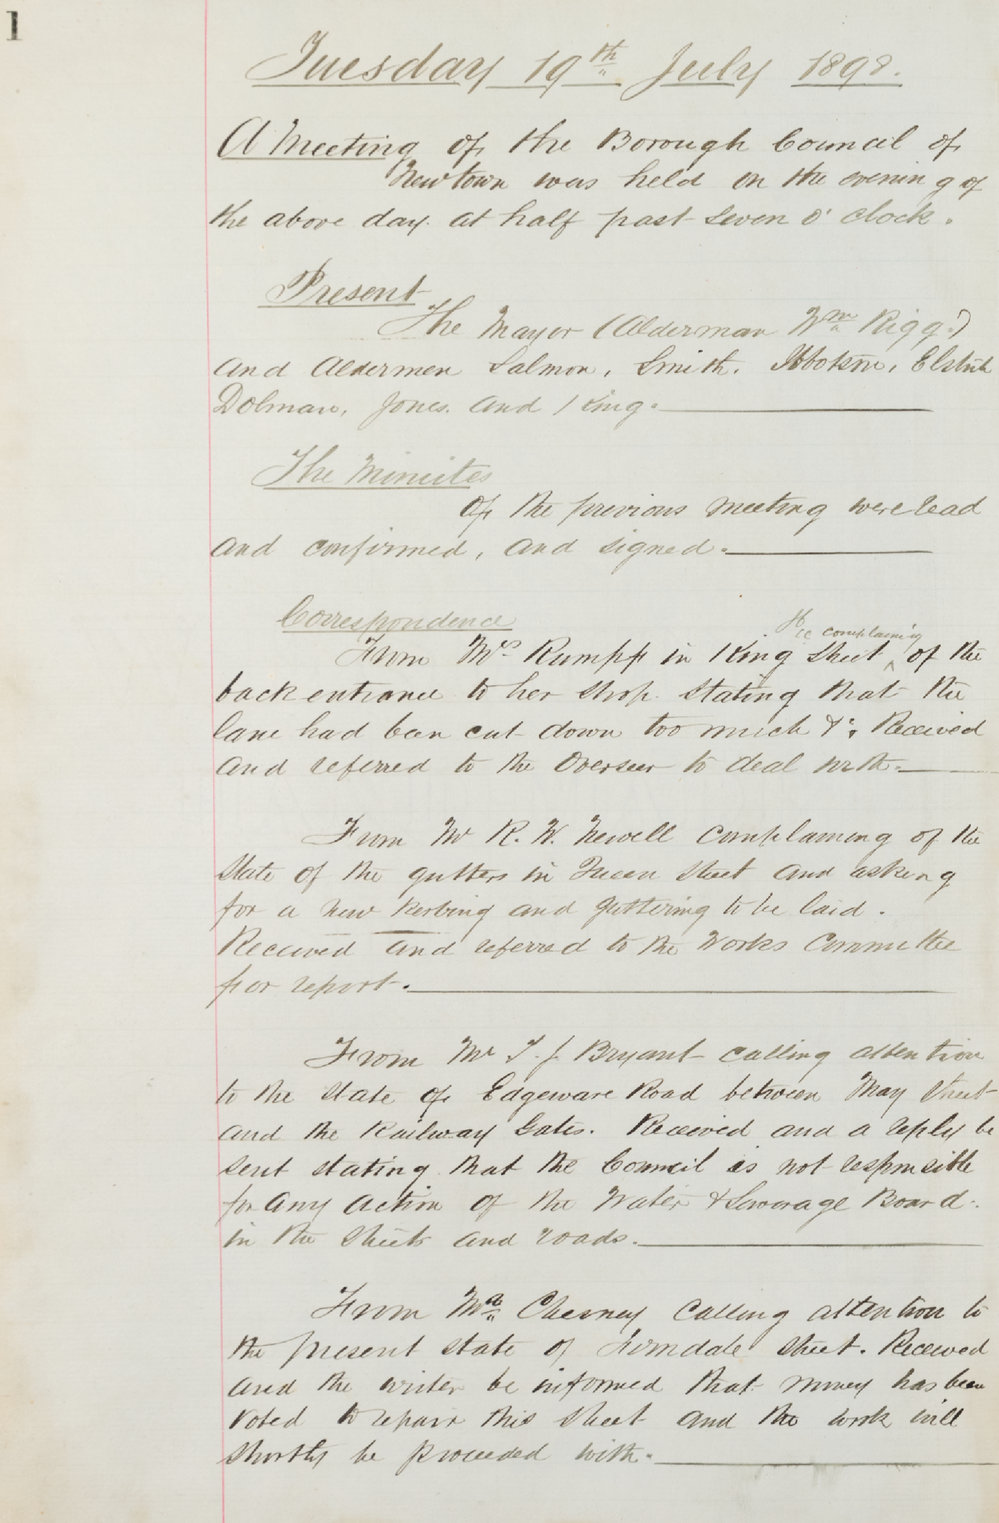 1
Tuesday 19th July 1898.
A Meeting of the Borough Council of
Newtown was held on the evening of
the above day at half past seven o'clock.
Present
The Mayor (Alderman Wm Rigg.)
and Aldermen Salmon, Smith,
Dolman, Jones and King.
The Minutes
of the previous meeting were read
and confirmed, and signed.
Correspondence
complaining
From Mrs Rumpp in King Street of the
back entrance to her shop stating that the
lane had been cut down too much &c Received
and referred to the Overseer to deal with.
From Mr R. W. Newell complaining of the
state of the gutters in Queen Street and asking
for a new kerbing and guttering to be laid.
Received and referred to the Works Committee
for report.
From Mr T. J. Bryant calling attention
to the state of Edgeware Road between May Street
and the Railway Gates. Received and a reply be
sent stating that the Council is not responsible
for any action of the Water & Sewerage Board
in the streets and roads.
From Chesney calling attention to
the present state of Ferndale Street. Received
and the writer be informed that money has been
voted to repair this street and the work will
shortly be proceeded with.